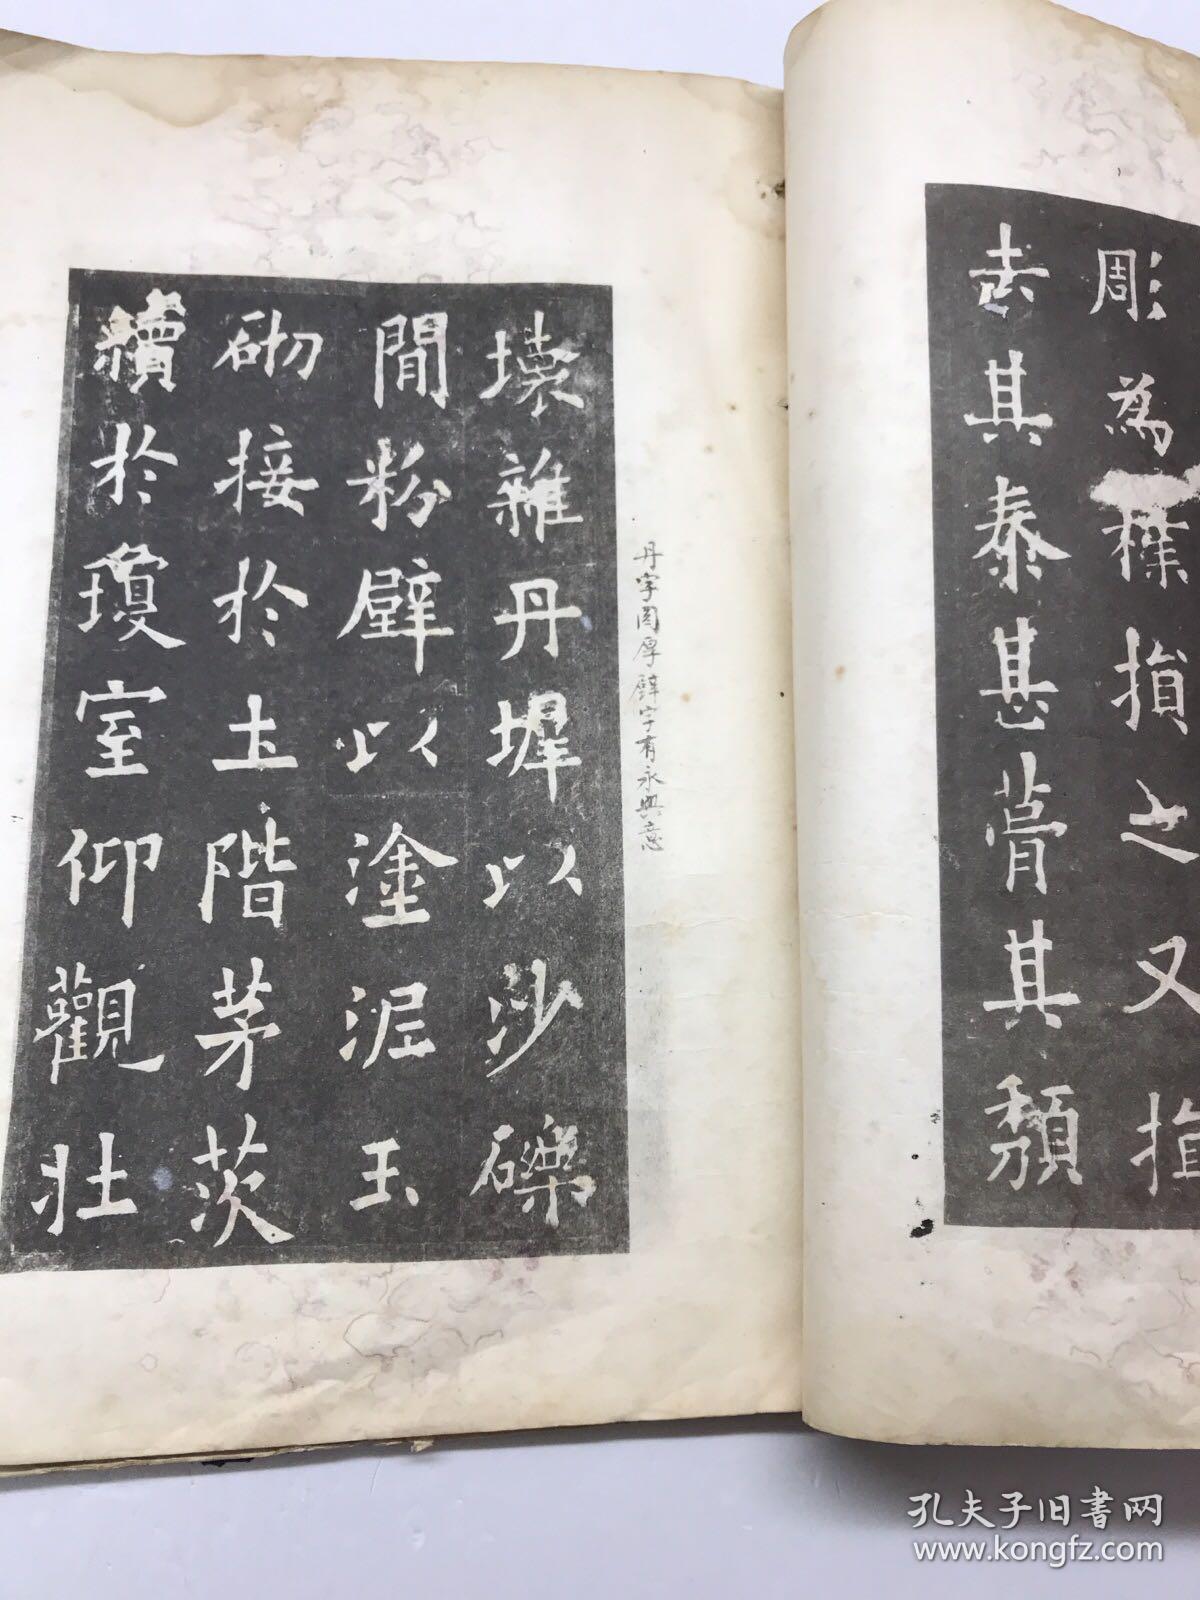 彫為樸損之又損
去其泰甚葺其頹
丹字圓厚壁字有永興意
壞雜丹墀以沙礫
間粉壁以塗泥玉
砌接於土階茅茨
續於瓊室仰觀壯
孔夫子旧书网
www.kongfz.com